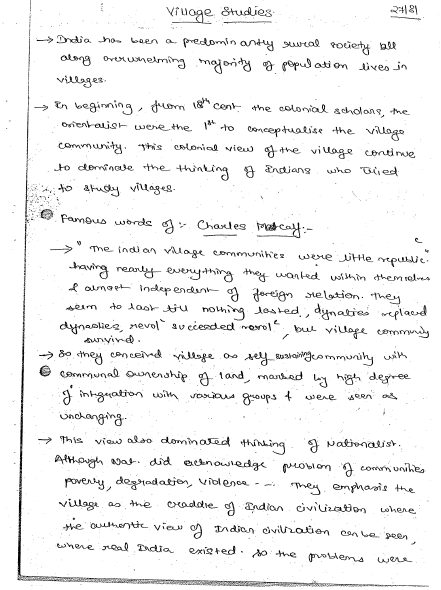 Village Studies. 27/8/
→ India has been a predominantly rural society all
along overwhelming majority of population lives in
villages.
→ In beginning, from 18th cent the colonial scholars, the
orientalist were the 1st to conceptualise the village
community. This colonial view of the village continue
to dominate the thinking of Indians who tried
to study villages.
Famous words of :- Charles Metcalf :-
→ " The indian village communities were little republic.
having nearly everything they wanted within themselves
& almost independent of foreign relation. They
seem to last till nothing lasted, dynaties replaced
dynasties, revol^n succeeded revol^n, but village community
survived.
→ So they conceived village as self sustaining community with
communal ownership of land, marked by high degree
of integration with various groups & were seen as
unchanging.
→ This view also dominated thinking of Nationalist.
Although Nat. did acknowledge problem of communities
poverty, degradation, violence --. They emphasis the
village as the craddle of Indian civilization where
the authentic view of Indian civilization can be seen,
where real India existed. So the problems were